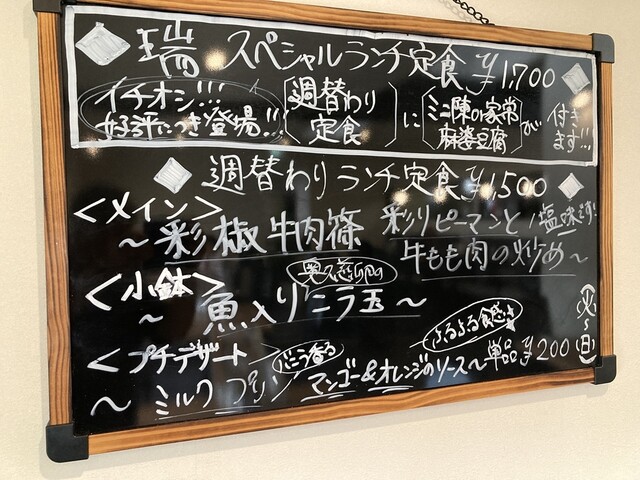 瑞 スペシャルランチ定食 ¥1,700
イチオシ!!! 好評につき登場!!! 週替わり定食 に ミニ陳の家常麻婆豆腐 が 付きます!!!
週替わりランチ定食 ¥1,500
<メイン>
~彩椒牛肉篠 彩りピーマンと牛もも肉の炒め~ 塩味です!
<小鉢>
~魚入りニラ玉~
<プチデザート>
バニラ香る ぷるぷる食感
~ミルクプリン マンゴー&オレンジのソース~ 単品¥200
(火~日)